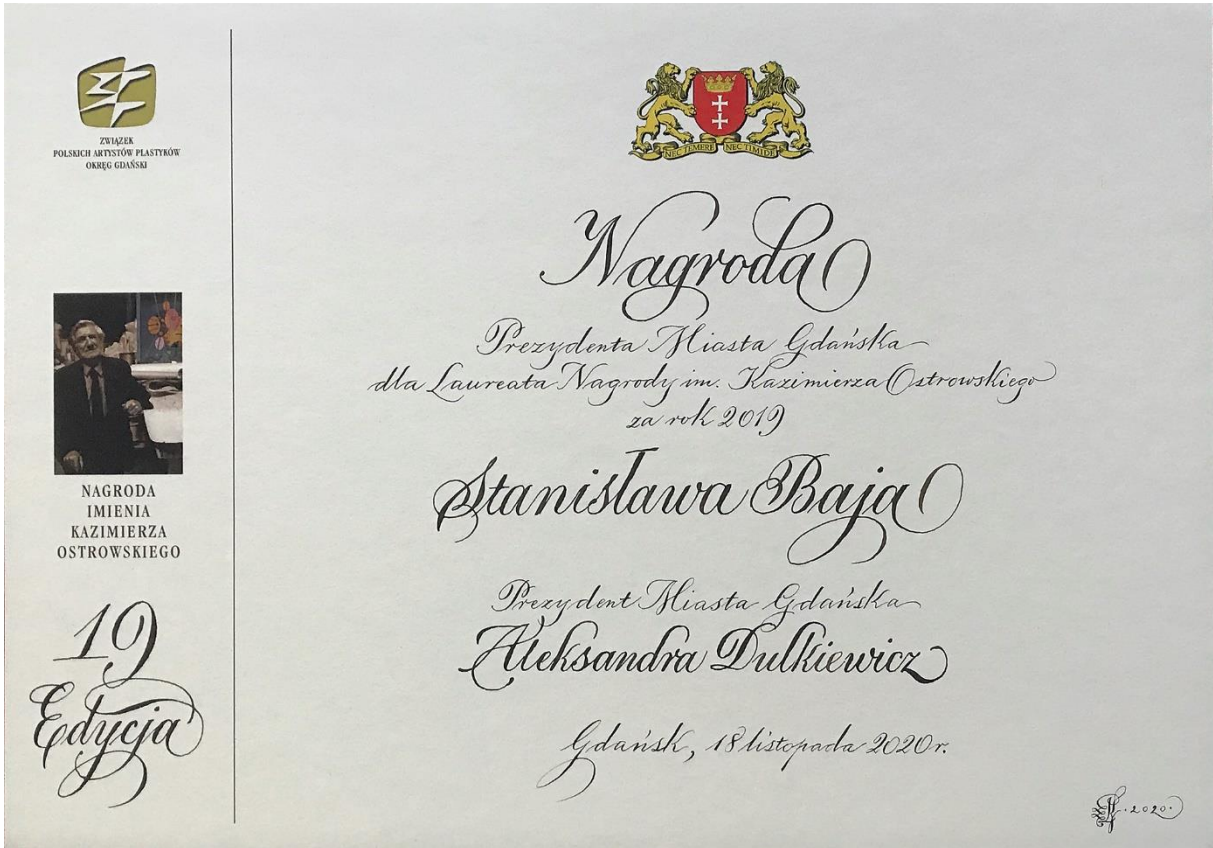 ZWIĄZEK
POLSKICH ARTYSTÓW PLASTYKÓW
OKRĘG GDAŃSKI
NAGRODA
IMIENIA
KAZIMIERZA
OSTROWSKIEGO
19
Edycja
NEC TEMERE NEC TIMIDE
Nagroda
Prezydenta Miasta Gdańska
dla Laureata Nagrody im. Kazimierza Ostrowskiego
za rok 2019
Stanisława Baja
Prezydent Miasta Gdańska
Aleksandra Dulkiewicz
Gdańsk, 18 listopada 2020 r.
·2020·